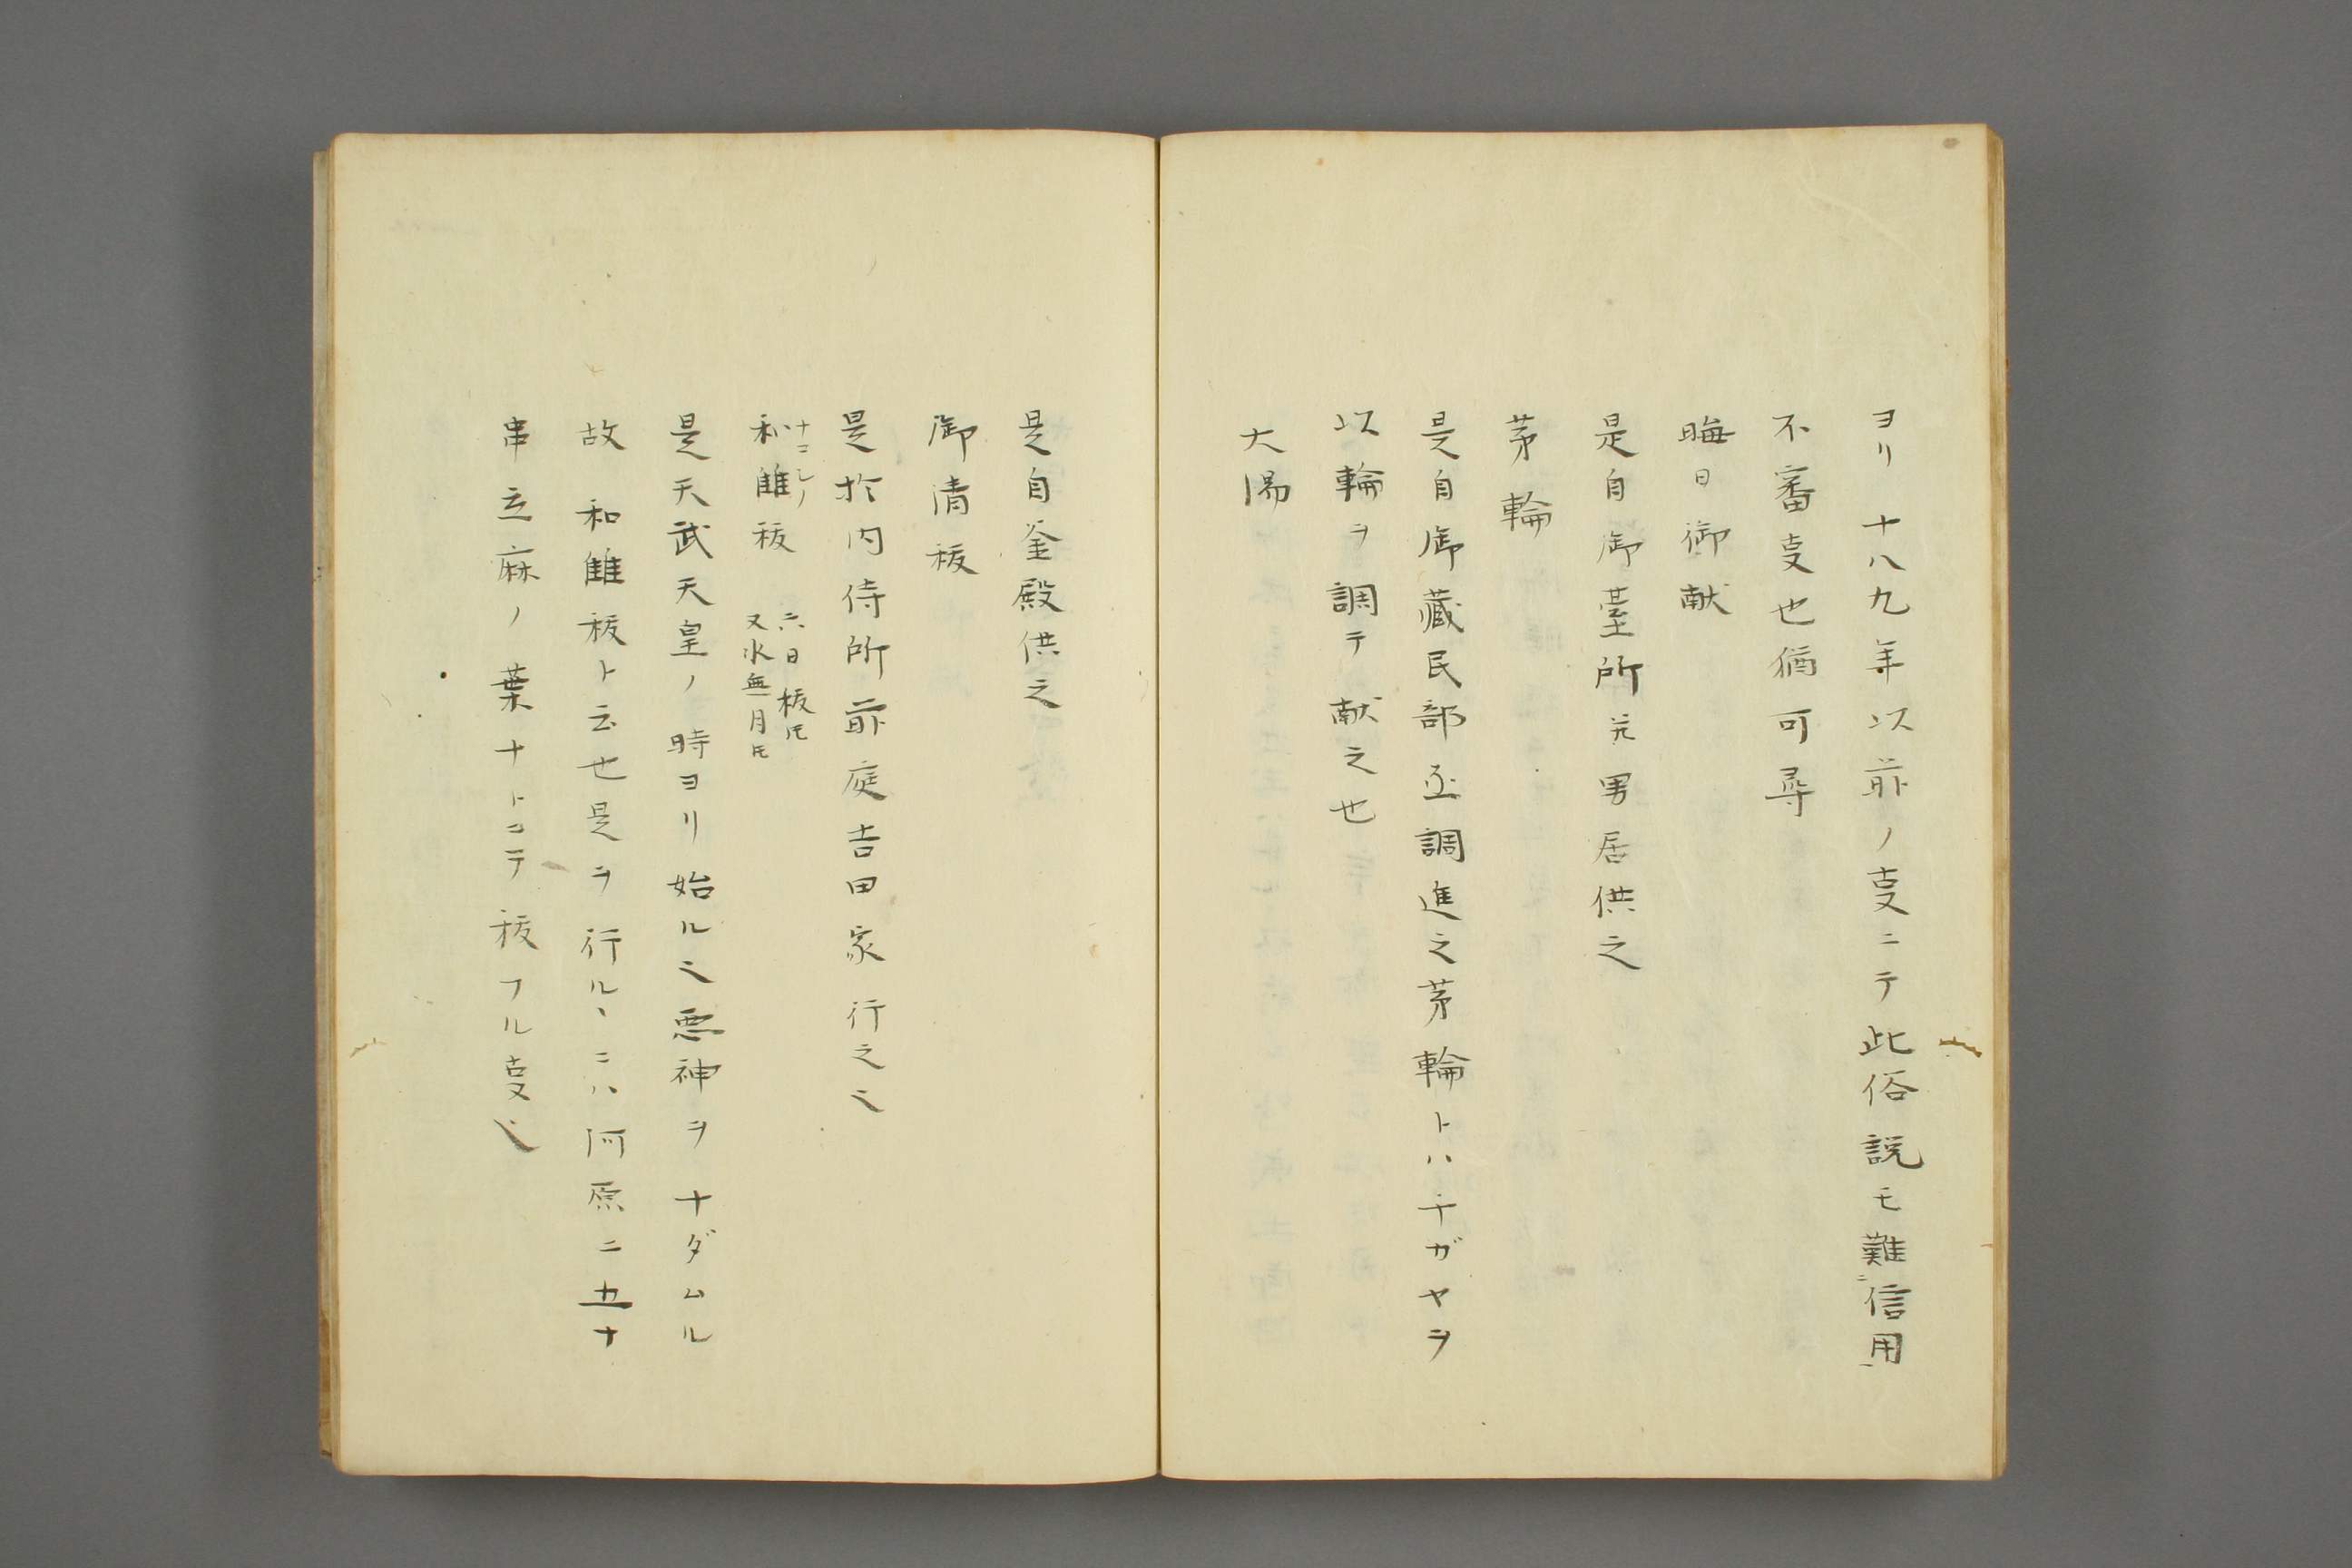 ヨリ十八九年以前ノ叓ニテ此俗説モ難ニ信用一
不審叓也猶可尋
晦日御献
是自御臺所元男居供之
茅輪
是自御蔵民部丞調進之茅輪トハチガヤヲ
以輪ヲ調テ献之也
大湯
是自釜殿供之
御清祓
是於内侍所前庭吉田家行之也
和雖祓 六日祓トモ
ナコシノ 又水無月トモ
是天武天皇ノ時ヨリ始ル也悪神ヲナダムル
故和雖祓ト云也是ヲ行ルヽニハ河原ニ五十
串立麻ノ葉ナトニテ祓フル叓也